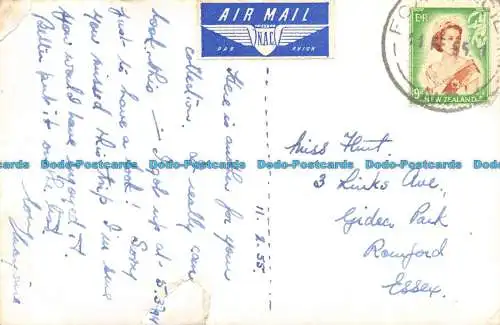 AIR MAIL
N.A.C.
PAR AVION
E R
9d
NEW ZEALAND
55
Here is another for your
collection. It really can
look this — I got up at 5.30 am
just to have a look! Sorry
you missed this trip I'm sure
you would have enjoyed it.
Peter put it on the list
11. 2. 55.
Miss Hunt
3 Links Ave,
Gidea Park
Romford
Essex.
Dodo-Postcards Dodo-Postcards Dodo-Postcards Dodo-Postcards Dodo-Postcards